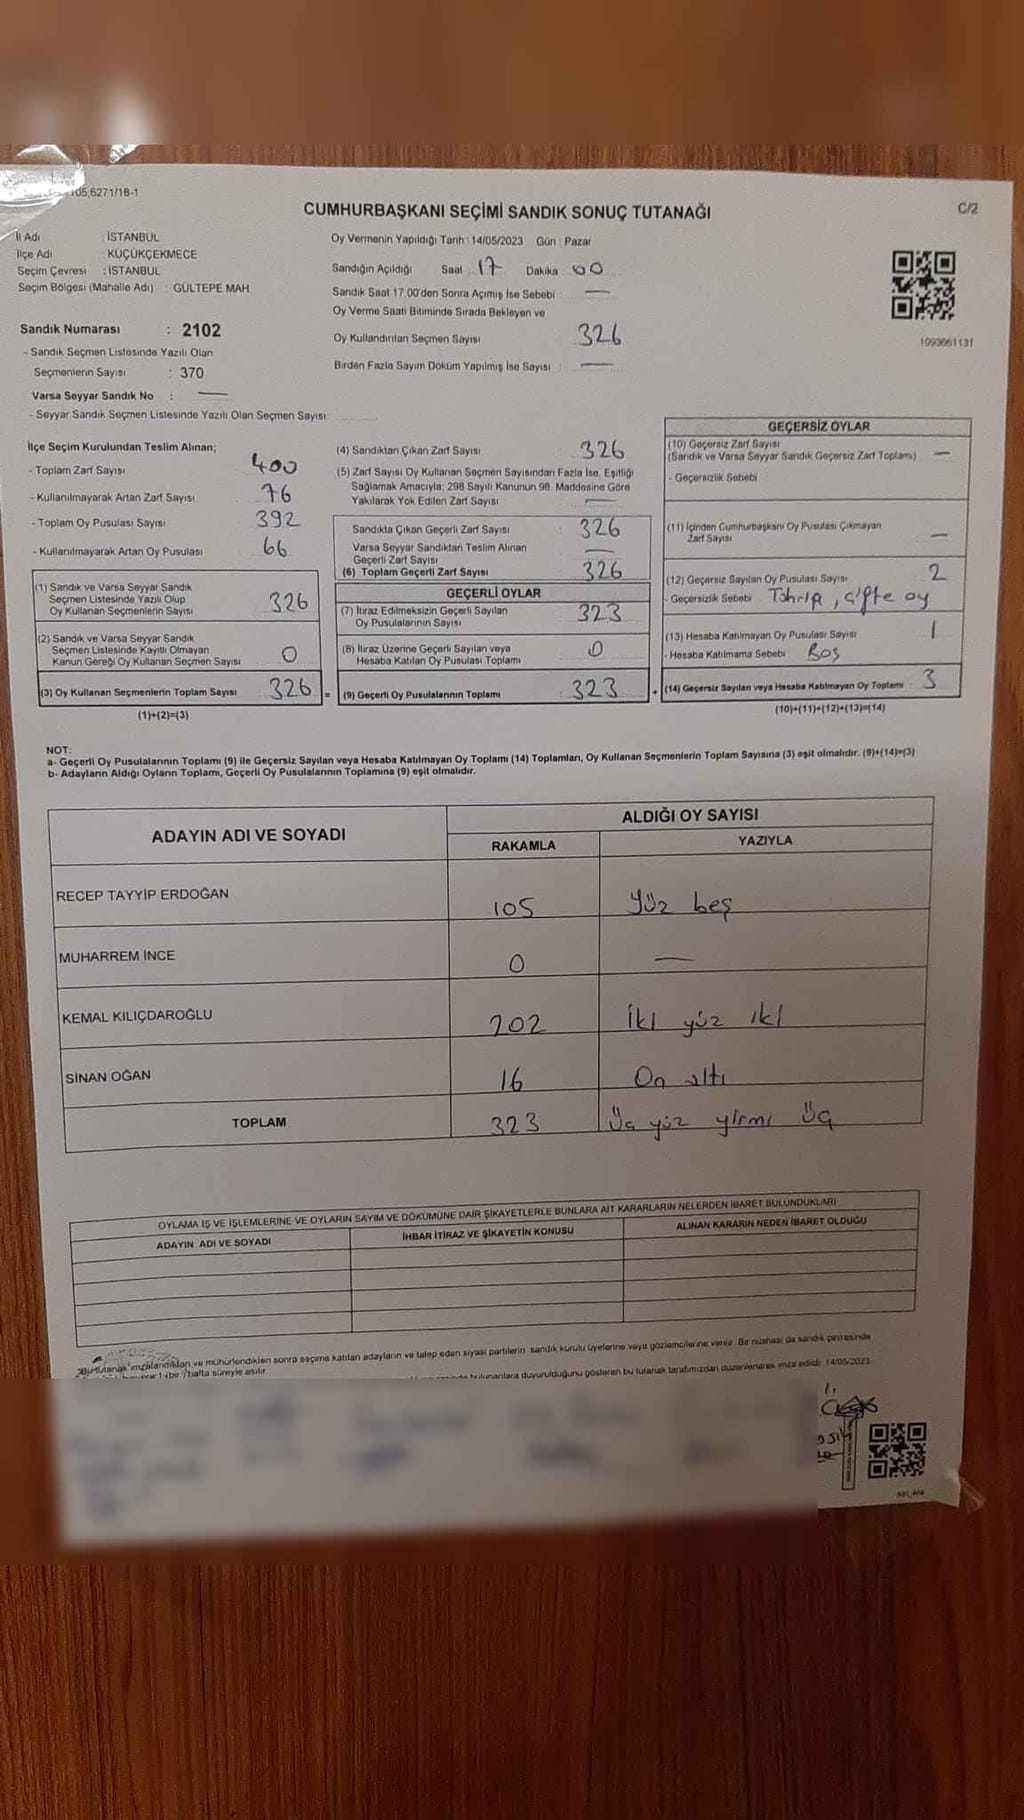 105,6271/18-1
CUMHURBAŞKANI SEÇİMİ SANDIK SONUÇ TUTANAĞI
C/2
İl Adı : İSTANBUL
İlçe Adı : KÜÇÜKÇEKMECE
Seçim Çevresi : İSTANBUL
Seçim Bölgesi (Mahalle Adı) : GÜLTEPE MAH
Oy Vermenin Yapıldığı Tarih : 14/05/2023 Gün : Pazar
Sandığın Açıldığı Saat 17 Dakika 00
Sandık Saat 17.00'den Sonra Açımış İse Sebebi : —
Oy Verme Saati Bitiminde Sırada Bekleyen ve
Oy Kullandırılan Seçmen Sayısı 326
Birden Fazla Sayım Döküm Yapılmış İse Sayısı : —
1093661131
Sandık Numarası : 2102
- Sandık Seçmen Listesinde Yazılı Olan
Seçmenlerin Sayısı : 370
Varsa Seyyar Sandık No : —
- Seyyar Sandık Seçmen Listesinde Yazılı Olan Seçmen Sayısı
İlçe Seçim Kurulundan Teslim Alınan;
- Toplam Zarf Sayısı 400
- Kullanılmayarak Artan Zarf Sayısı 76
- Toplam Oy Pusulası Sayısı 392
- Kullanılmayarak Artan Oy Pusulası 66
(1) Sandık ve Varsa Seyyar Sandık
Seçmen Listesinde Yazılı Olup
Oy Kullanan Seçmenlerin Sayısı 326
(2) Sandık ve Varsa Seyyar Sandık
Seçmen Listesinde Kayıtlı Olmayan
Kanun Gereği Oy Kullanan Seçmen Sayısı 0
(3) Oy Kullanan Seçmenlerin Toplam Sayısı 326 =
(1)+(2)=(3)
(4) Sandıktan Çıkan Zarf Sayısı 326
(5) Zarf Sayısı Oy Kullanan Seçmen Sayısından Fazla İse, Eşitliği
Sağlamak Amacıyla; 298 Sayılı Kanunun 98. Maddesine Göre
Yakılarak Yok Edilen Zarf Sayısı —
Sandıkta Çıkan Geçerli Zarf Sayısı 326
Varsa Seyyar Sandıktan Teslim Alınan
Geçerli Zarf Sayısı —
(6) Toplam Geçerli Zarf Sayısı 326
GEÇERLİ OYLAR
(7) İtiraz Edilmeksizin Geçerli Sayılan
Oy Pusulalarının Sayısı 323
(8) İtiraz Üzerine Geçerli Sayılan veya
Hesaba Katılan Oy Pusulası Toplamı 0
(9) Geçerli Oy Pusulalarının Toplamı 323 +
GEÇERSİZ OYLAR
(10) Geçersiz Zarf Sayısı
(Sandık ve Varsa Seyyar Sandık Geçersiz Zarf Toplamı) —
- Geçersizlik Sebebi
(11) İçinden Cumhurbaşkanı Oy Pusulası Çıkmayan
Zarf Sayısı —
(12) Geçersiz Sayılan Oy Pusulası Sayısı 2
- Geçersizlik Sebebi Tahrip, çifte oy
(13) Hesaba Katılmayan Oy Pusulası Sayısı 1
- Hesaba Katılmama Sebebi Boş
(14) Geçersiz Sayılan veya Hesaba Katılmayan Oy Toplamı 3
(10)+(11)+(12)+(13)=(14)
NOT:
a- Geçerli Oy Pusulalarının Toplamı (9) ile Geçersiz Sayılan veya Hesaba Katılmayan Oy Toplamı (14) Toplamları, Oy Kullanan Seçmenlerin Toplam Sayısına (3) eşit olmalıdır. (9)+(14)=(3)
b- Adayların Aldığı Oyların Toplamı, Geçerli Oy Pusulalarının Toplamına (9) eşit olmalıdır.
ADAYIN ADI VE SOYADI
ALDIĞI OY SAYISI
RAKAMLA YAZIYLA
RECEP TAYYİP ERDOĞAN 105 Yüz beş
MUHARREM İNCE 0 —
KEMAL KILIÇDAROĞLU 202 İki yüz iki
SİNAN OĞAN 16 On altı
TOPLAM 323 Üç yüz yirmi üç
OYLAMA İŞ VE İŞLEMLERİNE VE OYLARIN SAYIM VE DÖKÜMÜNE DAİR ŞİKAYETLERLE BUNLARA AİT KARARLARIN NELERDEN İBARET BULUNDUKLARI
ADAYIN ADI VE SOYADI İHBAR İTİRAZ VE ŞİKAYETİN KONUSU ALINAN KARARIN NEDEN İBARET OLDUĞU
"Bir tutanak imzalandıktan ve mühürlendikten sonra seçime katılan adayların ve talep eden siyasi partilerin sandık kurulu üyelerine veya gözlemcilerine verilir. Bir nüshası da sandık çevresinde
1 (bir) hafta süreyle asılır
bulunanlara duyurulduğunu gösteren bu tutanak tarafımızdan düzenlenerek imza edildi. 14/05/2023